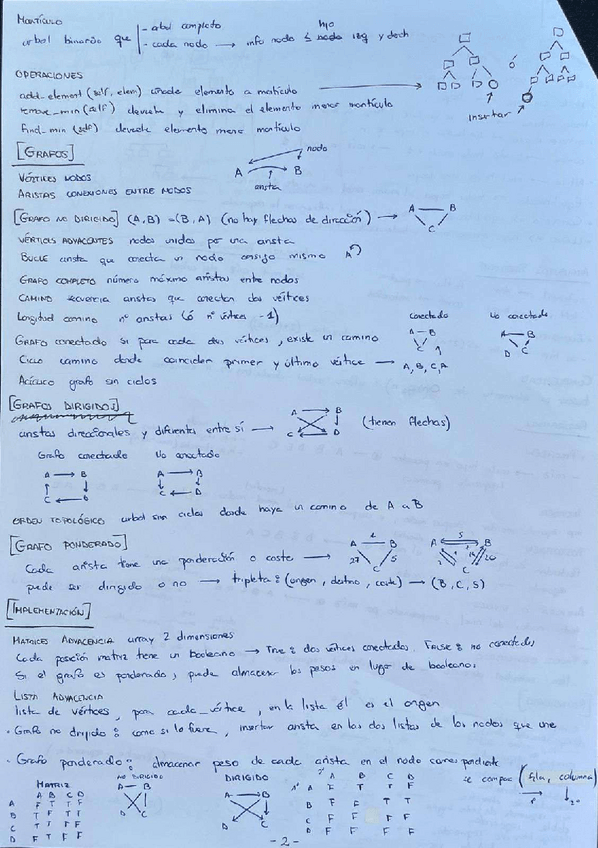 MONTÍCULO
árbol binario que | - árbol completo
- cada nodo → info nodo ≤ nodo hijo izq y dech
OPERACIONES
add_element (self, elem) añade elemento a montículo
remove_min (self) devuelve y elimina el elemento menor montículo
find_min (self) devuelve elemento menor montículo
insertar
[GRAFOS]
nodo
A B
arista
VÉRTICES NODOS
ARISTAS CONEXIONES ENTRE NODOS
[GRAFO NO DIRIGIDO] (A,B) = (B,A) (no hay flechas de dirección) →
A B
C
VÉRTICES ADYACENTES nodos unidos por una arista
BUCLE arista que conecta un nodo consigo mismo A
GRAFO COMPLETO número máximo aristas entre nodos
CAMINO secuencia aristas que conectan dos vértices
Longitud camino nº aristas (ó nº vértices - 1)
conectado No conectado
GRAFO conectado si para cada dos vértices, existe un camino
A - B
C
A B
D C
Ciclo camino donde coinciden primer y último vértice → A, B, C, A
Acíclico grafo sin ciclos
[GRAFOS DIRIGIDO]
aristas direccionales y diferentes entre sí → (tienen flechas)
A B
C D
Grafo conectado No conectado
A → B A → B
C D C D
ORDEN TOPOLÓGICO árbol sin ciclos donde haya un camino de A a B
[GRAFO PONDERADO]
Cada arista tiene una ponderación o coste →
A B
27 5
C
A 5 B
C 20
puede ser dirigido o no → tripleta: (origen, destino, coste) → (B, C, 5)
[IMPLEMENTACIÓN]
MATRICES ADYACENCIA array 2 dimensiones
Cada posición matriz tiene un booleano → True: dos vértices conectados. False: no conectados
Si el grafo es ponderado, puede almacenar los pesos en lugar de booleanos
LISTA ADYACENCIA
lista de vértices, para cada vértice, en la lista él es el origen
· Grafo no dirigido: como si lo fuere, insertar arista en las dos listas de los nodos que une
· Grafo ponderado: almacenar peso de cada arista en el nodo correspondiente
se compac (fila, columna)
MATRIZ NO DIRIGIDO DIRIGIDO
A B C D
A F T T F
B T F T T
C T T F F
A - B
D C
A B
D C
A B C D
A F T T F
B F F T T
C F F F F
D F F F F
- 2 -